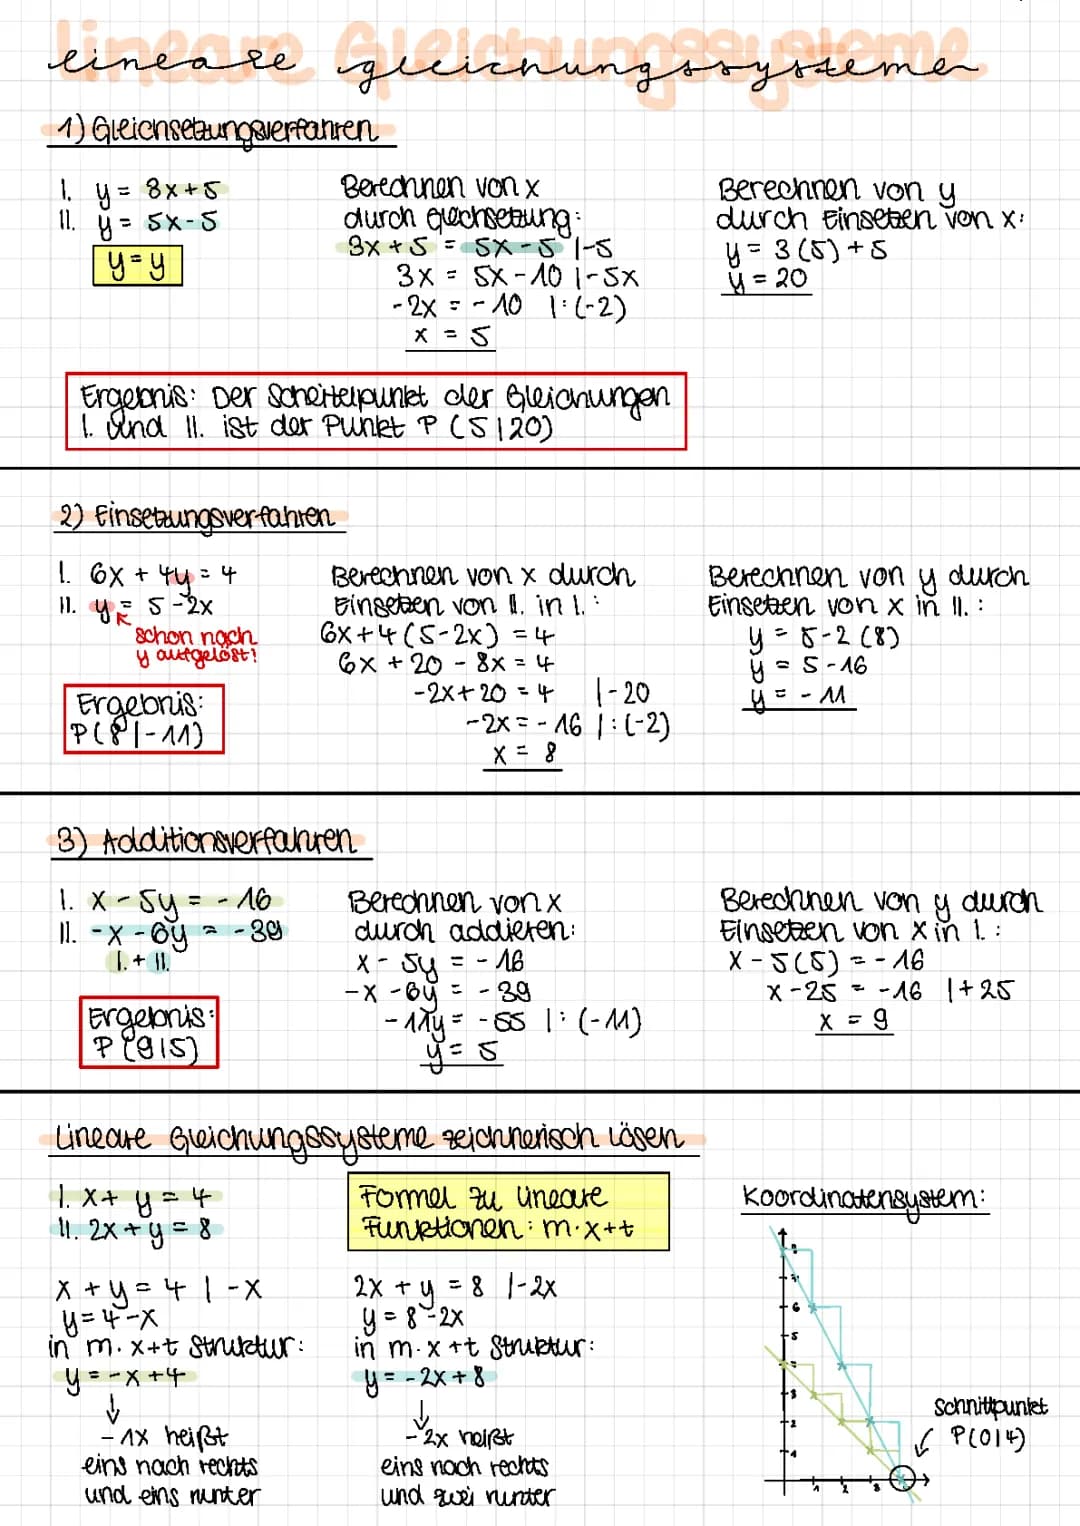 lineare Gleichungssysteme
lineare gleichungssysteme
1) Gleichsetzungsverfahren
I. y = 3x+5
II. y = 5x-5
y=y
Berechnen von x
durch Gleichsetzung:
3x+5 = 5x-5 |-5
3x = 5x-10 |-5x
-2x = -10 |:(-2)
x = 5
Berechnen von y
durch Einsetzen von x:
y = 3(5)+5
y = 20
Ergebnis: Der Scheitelpunkt der Gleichungen
I. und II. ist der Punkt P (5|20)
2) Einsetzungsverfahren
I. 6x + 4y = 4
II. y = 5-2x
schon nach
y aufgelöst!
Ergebnis:
P(8|-11)
Berechnen von x durch
Einsetzen von II. in I.:
6x+4(5-2x) = 4
6x+20-8x = 4
-2x+20 = 4 |-20
-2x = -16 |:(-2)
x = 8
Berechnen von y durch
Einsetzen von x in II.:
y = 5-2(8)
y = 5-16
y = -11
3) Additionsverfahren
I. x-5y = -16
II. -x-6y = -39
I.+II.
Ergebnis:
P(9|5)
Berechnen von x
durch addieren:
x - 5y = -16
-x -6y = -39
-11y = -55 |:(-11)
y = 5
Berechnen von y durch
Einsetzen von x in I.:
x-5(5) = -16
x-25 = -16 |+25
x = 9
Lineare Gleichungssysteme zeichnerisch lösen
I. x+ y = 4
II. 2x+y = 8
x+y = 4 |-x
y=4-x
in m.x+t Struktur:
y = -x+4
-1x heißt
eins nach rechts
und eins runter
Formel zu lineare
Funktionen: m·x+t
2x + y = 8 |-2x
y = 8-2x
in m·x+t Struktur:
y = -2x+8
-2x heißt
eins nach rechts
und zwei runter
Koordinatensystem:
8
7
6
5
3
2
1
1 2 3
Schnittpunkt
P(0|4)